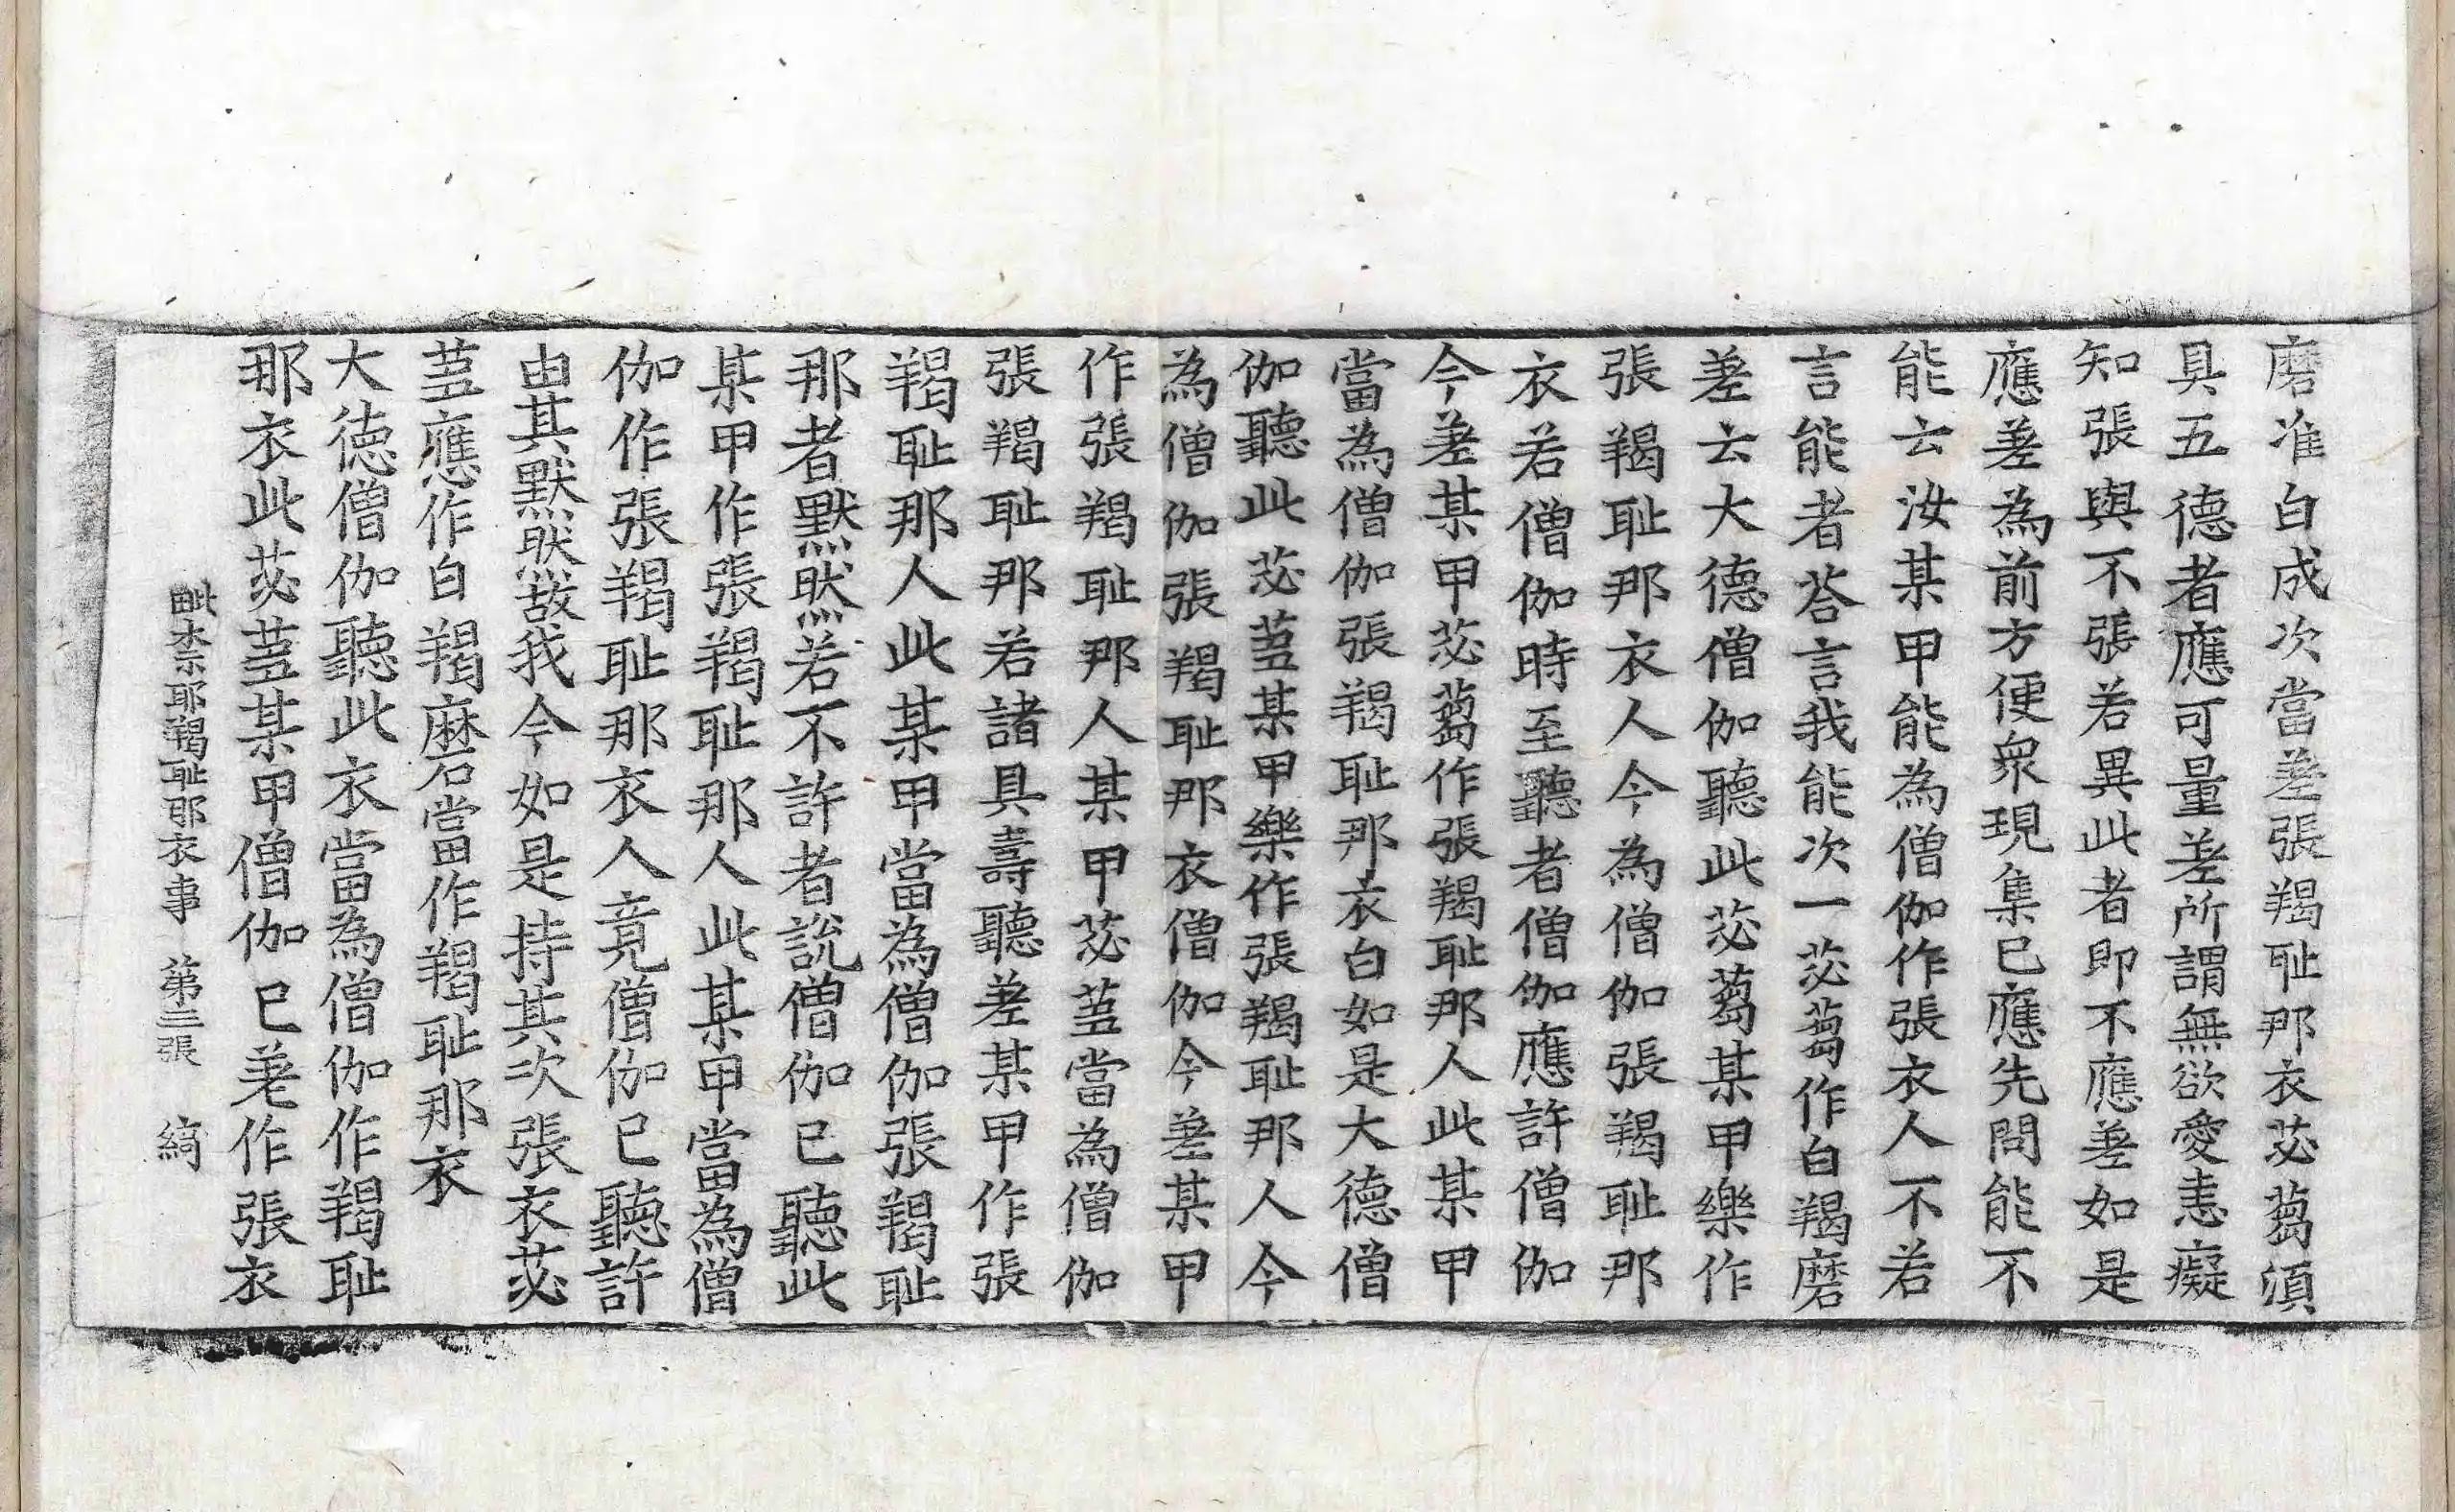 磨准白成次當差張羯耻那衣苾蒭須
具五德者應可量差所謂無欲愛恚癡
知張與不張若異此者即不應差如是
應差為前方便衆現集已應先問能不
能云汝某甲能為僧伽作張衣人不若
言能者荅言我能次一苾蒭作白羯磨
差云大德僧伽聽此苾蒭某甲樂作
張羯耻那衣人今為僧伽張羯耻那
衣若僧伽時至聽者僧伽應許僧伽
今差某甲苾蒭作張羯耻那人此某甲
當為僧伽張羯耻那衣白如是大德僧
伽聽此苾蒭某甲樂作張羯耻那人今
為僧伽張羯耻那衣僧伽今差某甲
作張羯耻那人某甲苾蒭當為僧伽
張羯耻那若諸具壽聽差某甲作張
羯耻那人此某甲當為僧伽張羯耻
那者默然若不許者說僧伽已聽此
某甲作張羯耻那人此某甲當為僧
伽作張羯耻那衣人竟僧伽已聽許
由其默然故我今如是持其次張衣苾
蒭應作白羯磨當作羯耻那衣
大德僧伽聽此衣當為僧伽作羯耻
那衣此苾蒭某甲僧伽已差作張衣
毗柰耶羯耻那衣事　第三張　綺